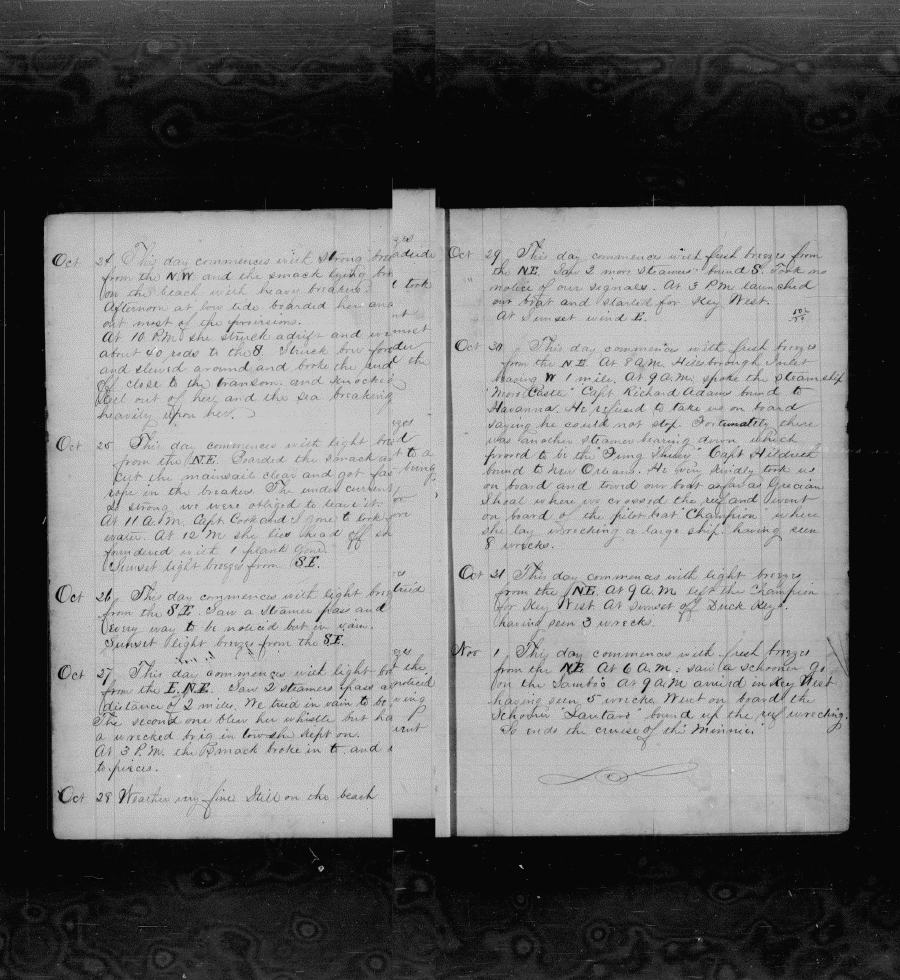 Oct 24 This day commences with strong bre
from the N.W and the smack lying bro
on the beach with heavy breakers.
Afternoon at low tide boarded her and
out most of the provisions.
At 10 P.M. she struck adrift and we
about 40 rods to the S. Struck bow fo
and slewed around and broke the
off close to the transom. and knocked
keel out of her, and the sea breaking
heavily upon her.
Oct 25 This day commences with light bre
from the N.E. Boarded the smack
cut the mainsail clear and got fas
rope in the breakers The under current
so strong we were obliged to leave it.
At 11 A.M. Capt. Cook and I gone to look
water. At 12 M she lies head off sh
foundered with 1 plank gone.
Sunset light breezes from S.E.
Oct 26 This day commences with light bre
from the S.E. Saw a steamer pass and
every way to be noticed but in vain.
Sunset light breezes from the S.E.
Oct 27 This day commences with light b
from the E.N.E. Saw 2 steamers pass a
distance of 2 miles. We tried in vain to be
The second one blew her whistle but ha
a wrecked brig in tow she kept on.
At 3 P.M. the Smack broke in to and
to pieces.
Oct 28 Weather very fine Still on the beach
ges
adside
took
nt
most
der
the
zes
t to a
bring
or
zes
tried
zes
t the
noticed
ving
p
went
Oct 29 This day commences with fresh breezes from
the N.E. Saw 2 more steamers bound S. Took no
notice of our signals. At 3 P.M. launched
our boat and started for Key West.
At Sunset wind E.
Oct 30 This day commences with fresh breezes
from the N.E. At 8 A.M. Hillsborough Inlet
bearing W 1 mile. At 9 A.M. spoke the steamship
"Moro Castle" Capt Richard Adams bound to
Havanna. He refused to take us on board
saying he could not stop. Fortunately there
was another steamer bearing down which
proved to be the "Fung Shuey" Capt Hildreth
bound to New Orleans. He very kindly took us
on board and towed our boat as far as Grecian
Shoal where we crossed the reef and went
on board of the pilot boat "Champion" where
she lay wrecking a large ship. having seen
8 wrecks.
Oct 31 This day commences with light breezes
from the N.E. At 9 A.M. left the Champion
for Key West At Sunset off Duck Key.
having seen 3 wrecks.
Nov 1 This day commences with fresh breezes
from the N.E. At 6 A.M. saw a schooner go
on the Sambo. At 9 A.M arrived in Key West
having seen 5 wrecks Went on board the
Schooner "Lautaro" bound up the reef wrecking.
So ends the cruise of the "Minnie."